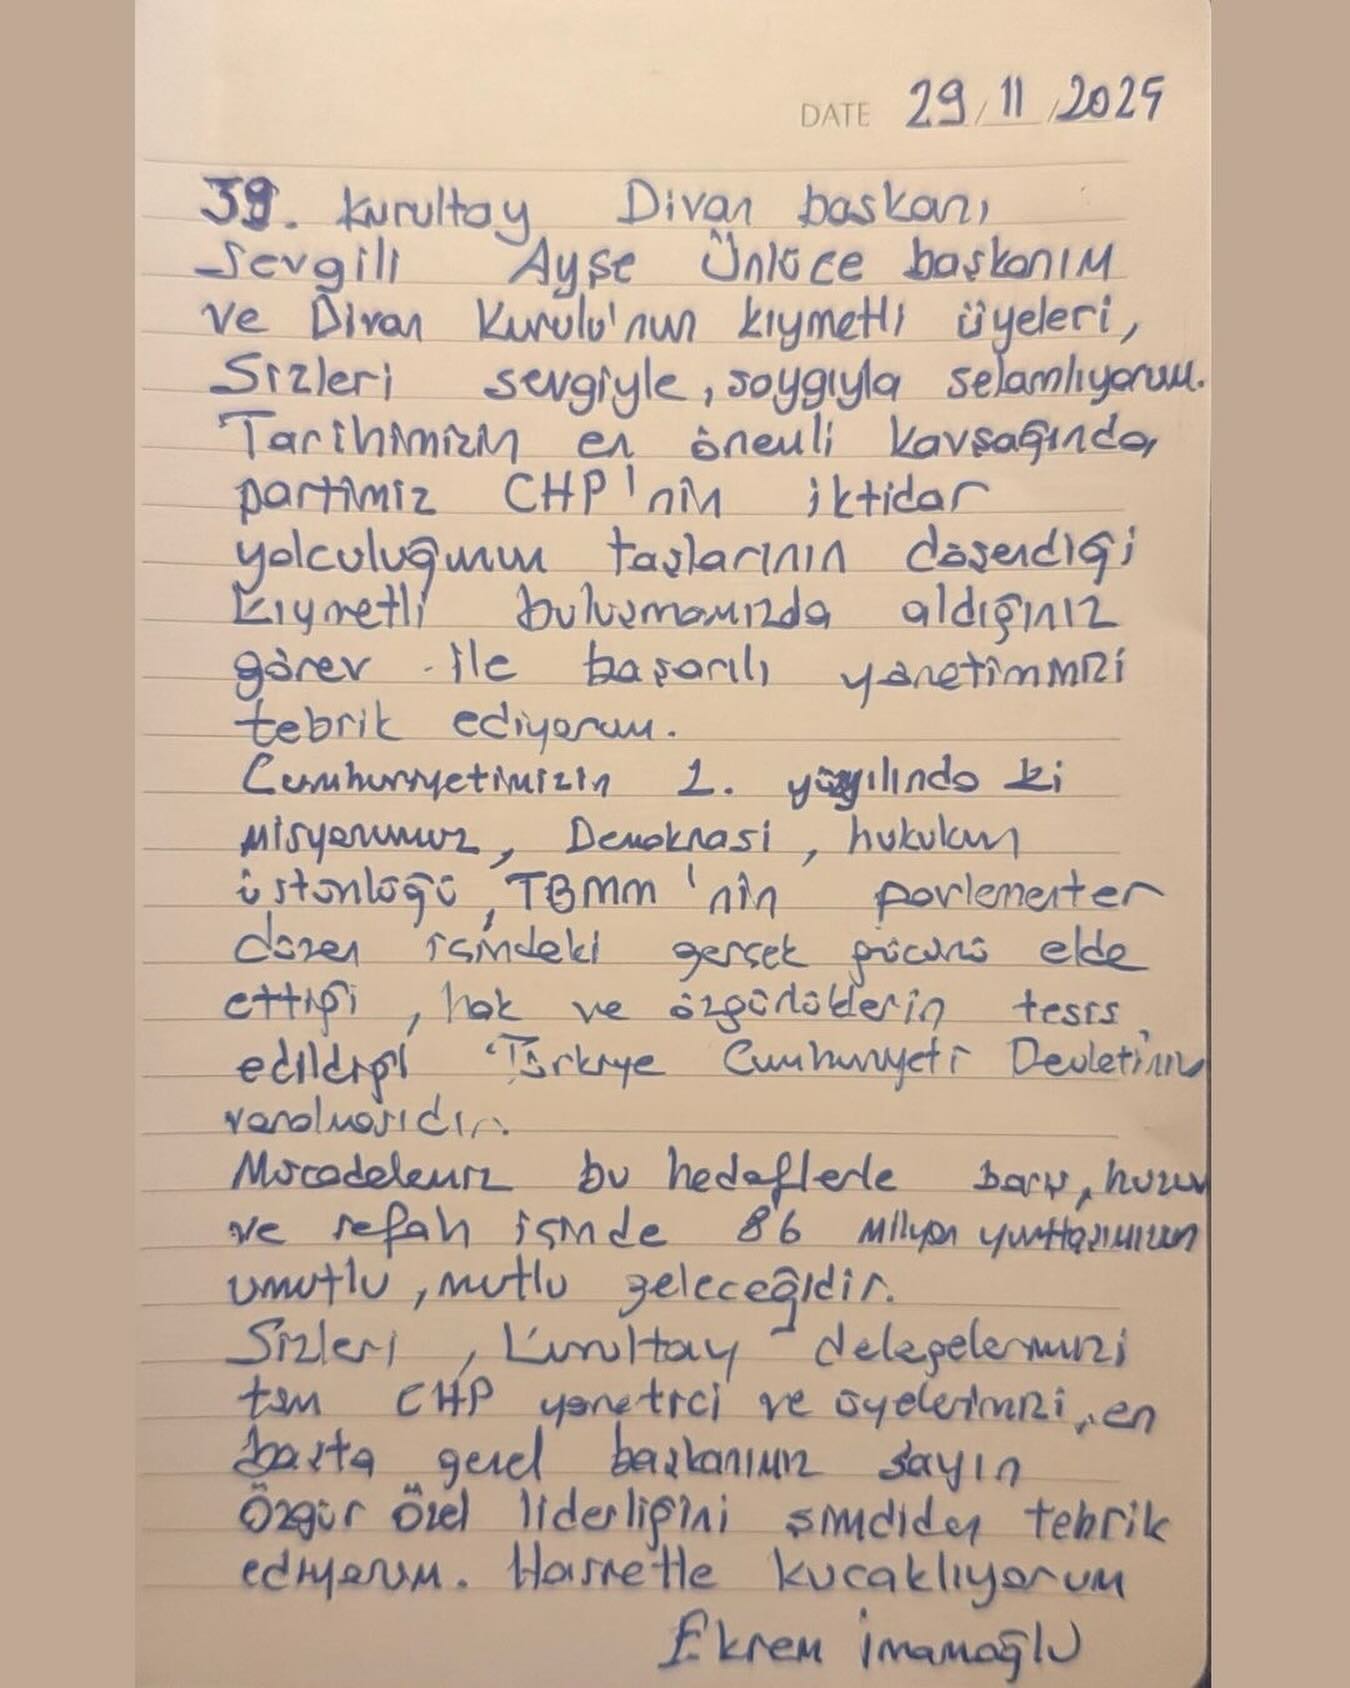 DATE 29/11/2025
39. Kurultay Divan başkanı,
Sevgili Ayşe Ünlüce başkanım
ve Divan Kurulu'nun kıymetli üyeleri,
Sizleri sevgiyle, saygıyla selamlıyorum.
Tarihimizin en önemli kavşağında,
partimiz CHP'nin iktidar
yolculuğunun taşlarının döşendiği
kıymetli buluşmamızda aldığınız
görev ile başarılı yönetiminizi
tebrik ediyorum.
Cumhuriyetimizin 2. yüzyılında ki
misyonumuz, Demokrasi, hukukun
üstünlüğü, TBMM'nin parlementer
düzen içindeki gerçek gücünü elde
ettiği, hak ve özgürlüklerin tesis
edildiği Türkiye Cumhuriyeti Devletinin
varolmasıdır.
Mücadelemiz bu hedeflerle barış, huzur
ve refah içinde 86 milyon yurttaşımızın
umutlu, mutlu geleceğidir.
Sizleri, Kurultay delegelerimizi
tüm CHP yönetici ve üyelerimizi, en
başta genel başkanımız sayın
Özgür Özel liderliğini şimdiden tebrik
ediyorum. Hasretle kucaklıyorum
Ekrem İmamoğlu